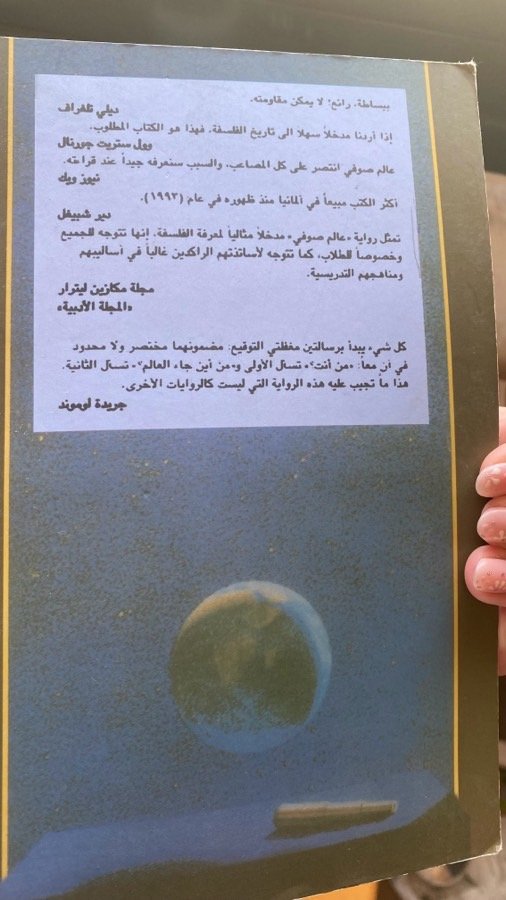 ببساطة، رائع! لا يمكن مقاومته.
ديلي تلغراف
إذا أردنا مدخلاً سهلاً الى تاريخ الفلسفة، فهذا هو الكتاب المطلوب.
وول ستريت جورنال
عالم صوفي انتصر على كل المصاعب، والسبب سنعرفه جيداً عند قراءته.
نيوز ويك
أكثر الكتب مبيعاً في المانيا منذ ظهوره في عام (١٩٩٣).
دير شبيغل
تمثل رواية «عالم صوفي» مدخلاً مثالياً لمعرفة الفلسفة، إنها تتوجه للجميع
وخصوصاً للطلاب، كما تتوجه لأساتذتهم الراكدين غالباً في أساليبهم
ومناهجهم التدريسية.
مجلة مكازين ليترار
«المجلة الأدبية»
كل شيء يبدأ برسالتين مغفلتي التوقيع: مضمونهما مختصر ولا محدود
في آن معاً: «من أنت؟» تسأل الأولى و«من أين جاء العالم؟» تسأل الثانية.
هذا ما تجيب عليه هذه الرواية التي ليست كالروايات الأخرى.
جريدة لوموند